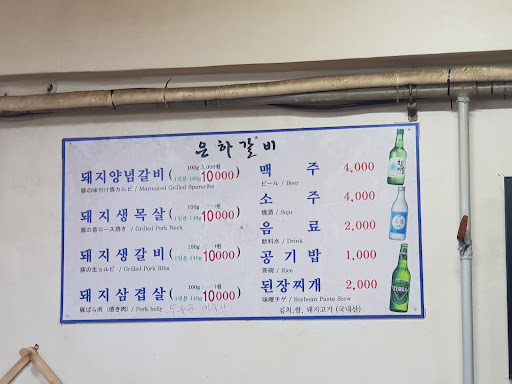 은하갈비
100g 5,000원
돼지양념갈비 (1인분 160g 10000)
豚の味付け豚カルビ / Marinated Grilled Spareribs
100g
돼지생목살 (1인분 140g 10000)
豚の首ロース焼き / Grilled Pork Neck
100g
돼지생갈비 (1인분 140g 10000)
豚の生カルビ / Grilled Pork Ribs
100g
돼지삼겹살 (1인분 140g 10000)
豚ばら肉 (焼き肉) / Pork belly
맥주 4,000
ビール / Beer
소주 4,000
焼酒 / Soju
음료 2,000
飲料水 / Drink
공기밥 1,000
茶碗 / Rice
된장찌개 2,000
味噌チゲ / Soybean Paste Stew
김치, 쌀, 돼지고기 (국내산)
TERRA